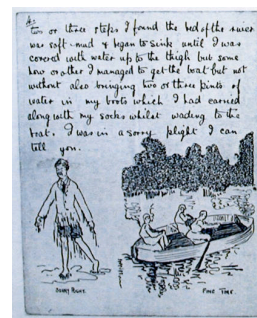 two or three steps I found the bed of the river
was soft mud & began to sink until I was
covered with water up to the thigh but some
how or other I managed to get the boat but not
without also bringing two or three pints of
water in my boots which I had carried
along with my socks whilst wading to the
boat. I was in a sorry plight I can
tell you.
SORRY PLIGHT
FINE TIME.